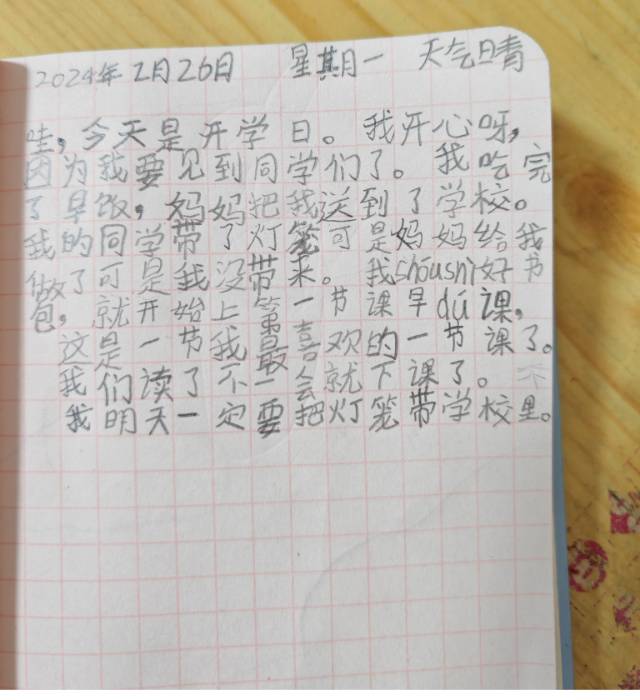 2024年2月26日 星期一 天气晴
哇，今天是开学日。我开心呀，
因为我要见到同学们了。我吃完
了早饭，妈妈把我送到了学校。
我的同学带了灯笼可是妈妈给我
做了可是我没带来。我shōushí好书
包，就开始上第一节课早dú课，
这是一节我最喜欢的一节课了。
我们读了不一会就下课了。
我明天一定要把灯笼带学校里。